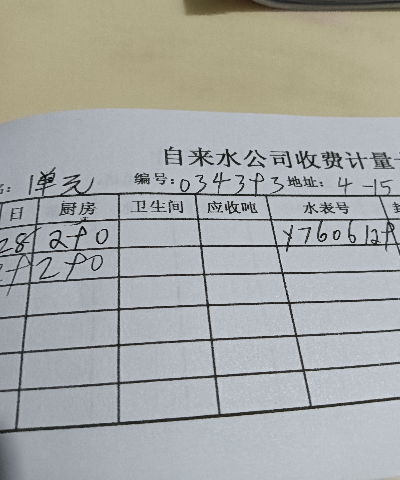 自来水公司收费计量
1单元 编号:034393 地址: 4-15
日 厨房 卫生间 应收吨 水表号
28 290 Y760612
290